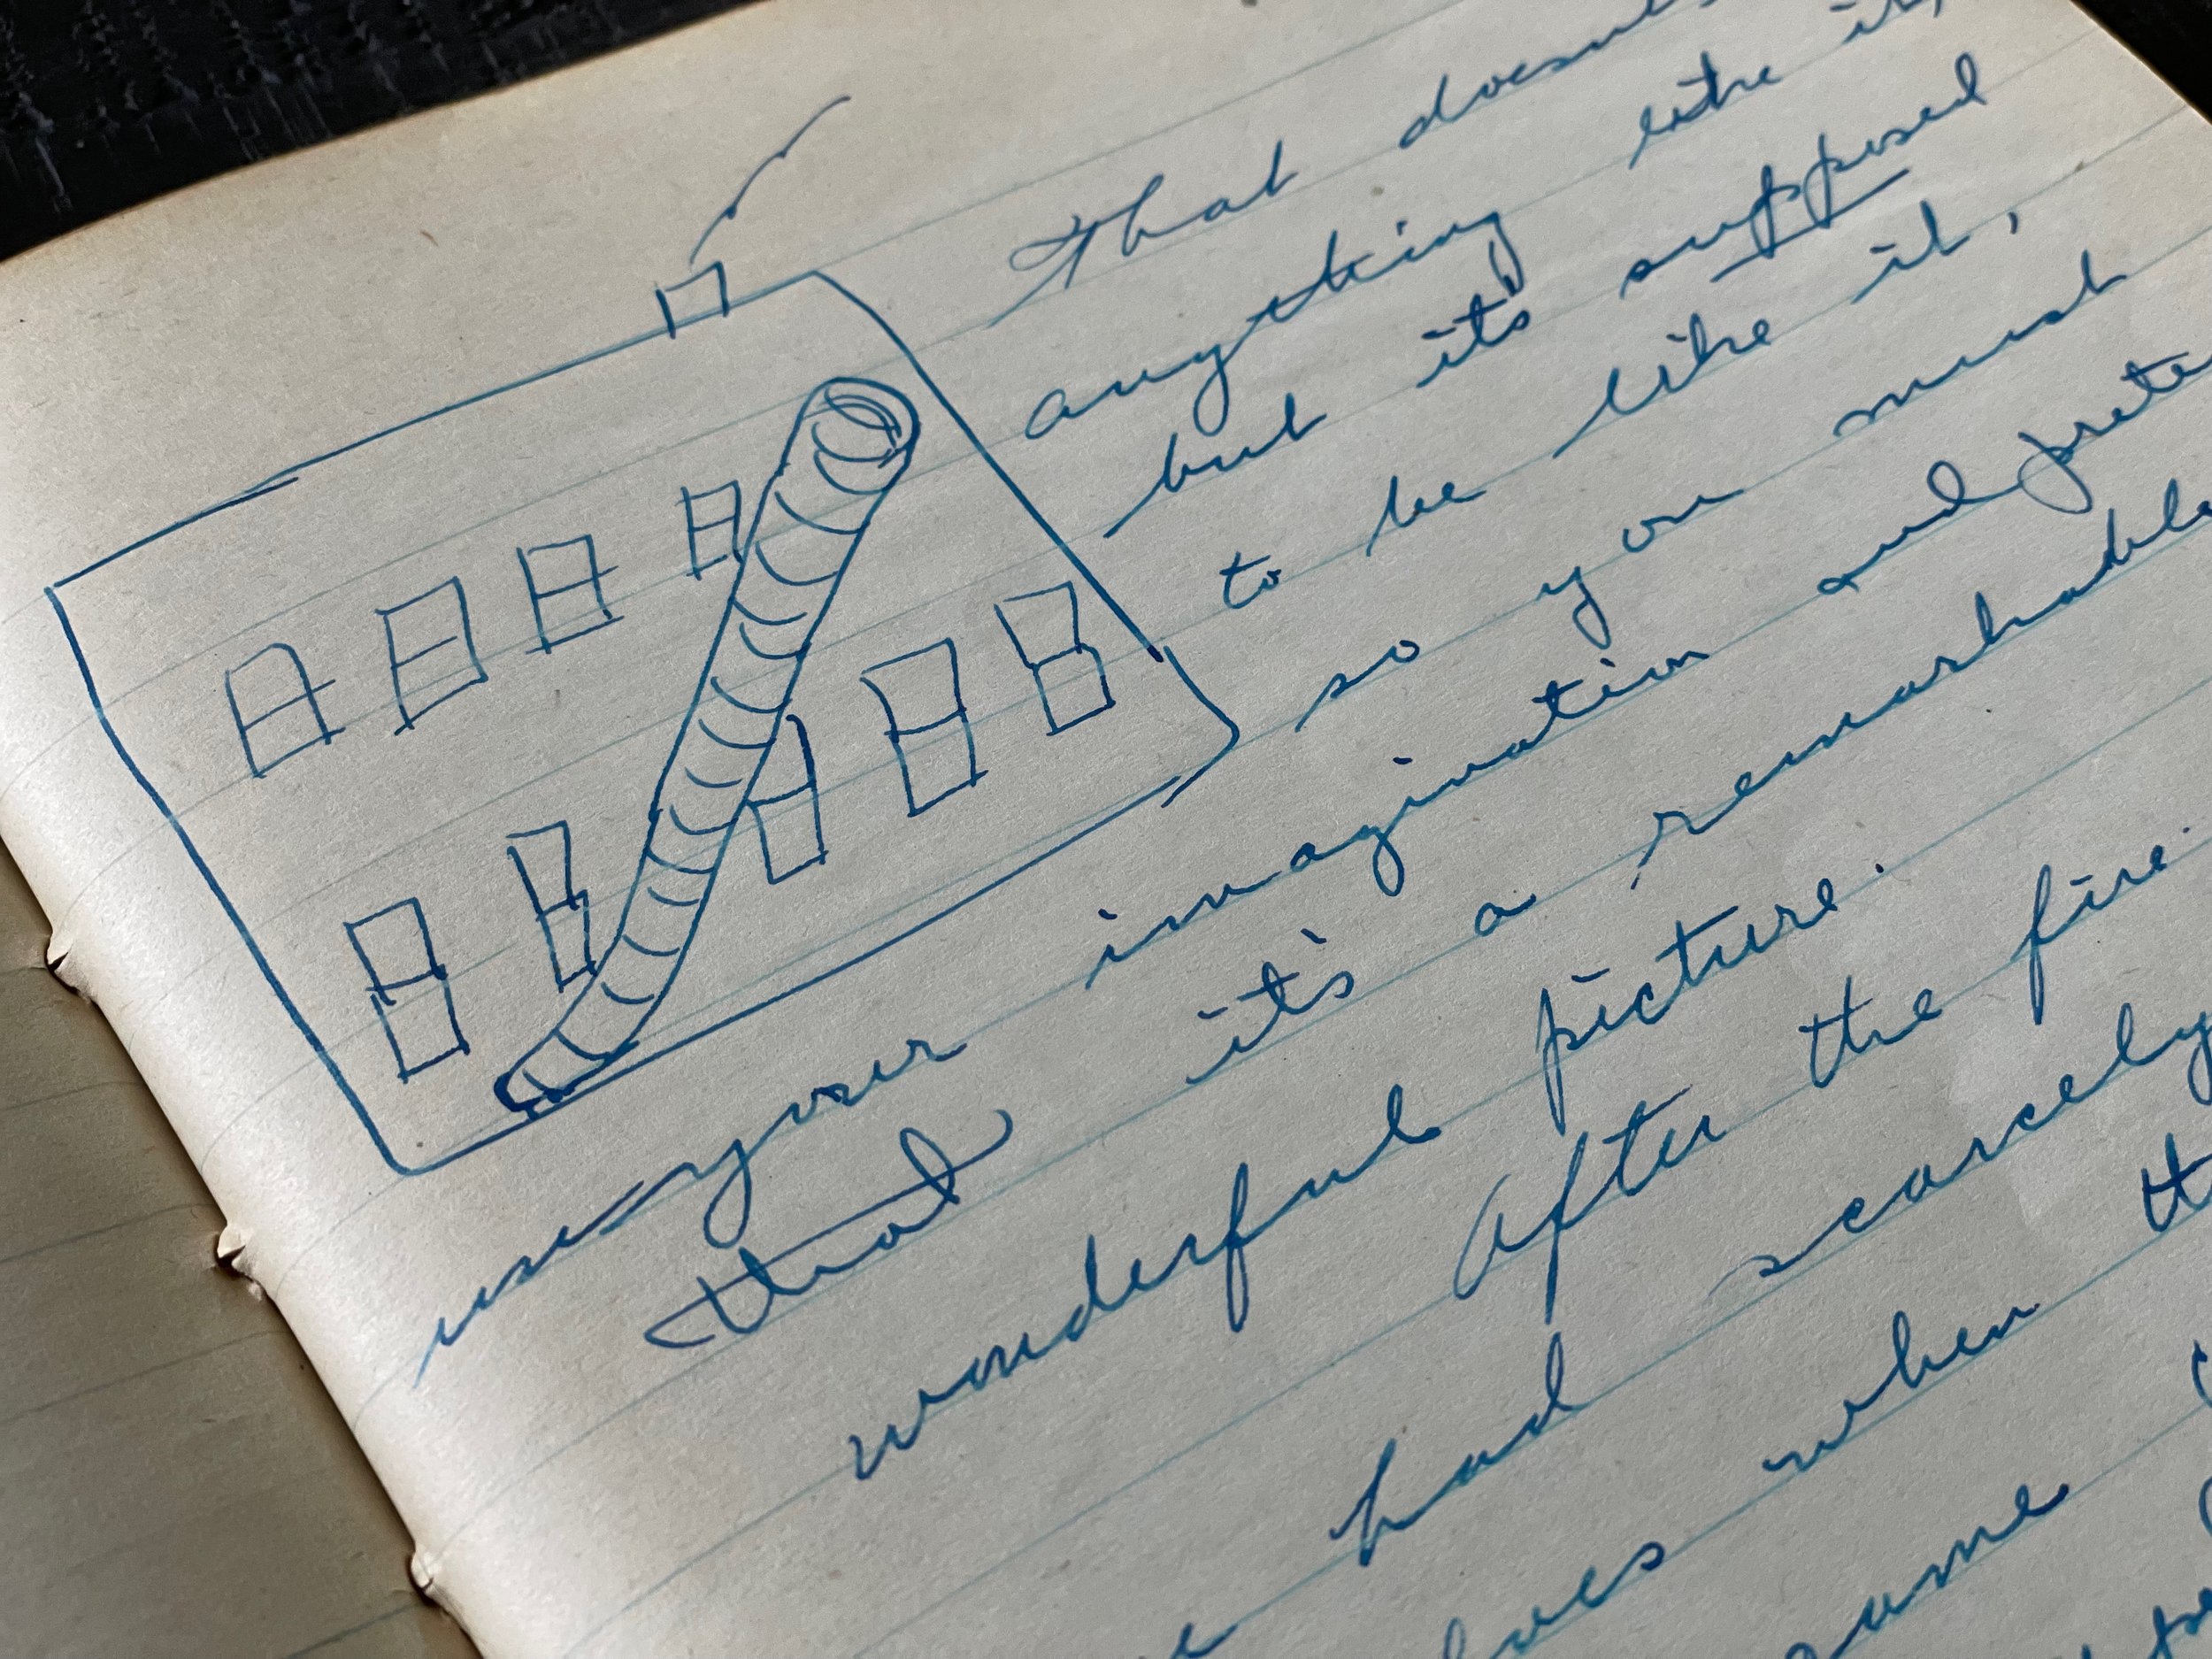 That doesn't
anything like it,
but it's supposed
to be like it,
so you must
use your imagination and
that it's a remarkable
wonderful picture.
After the fire
had scarcely
when
came